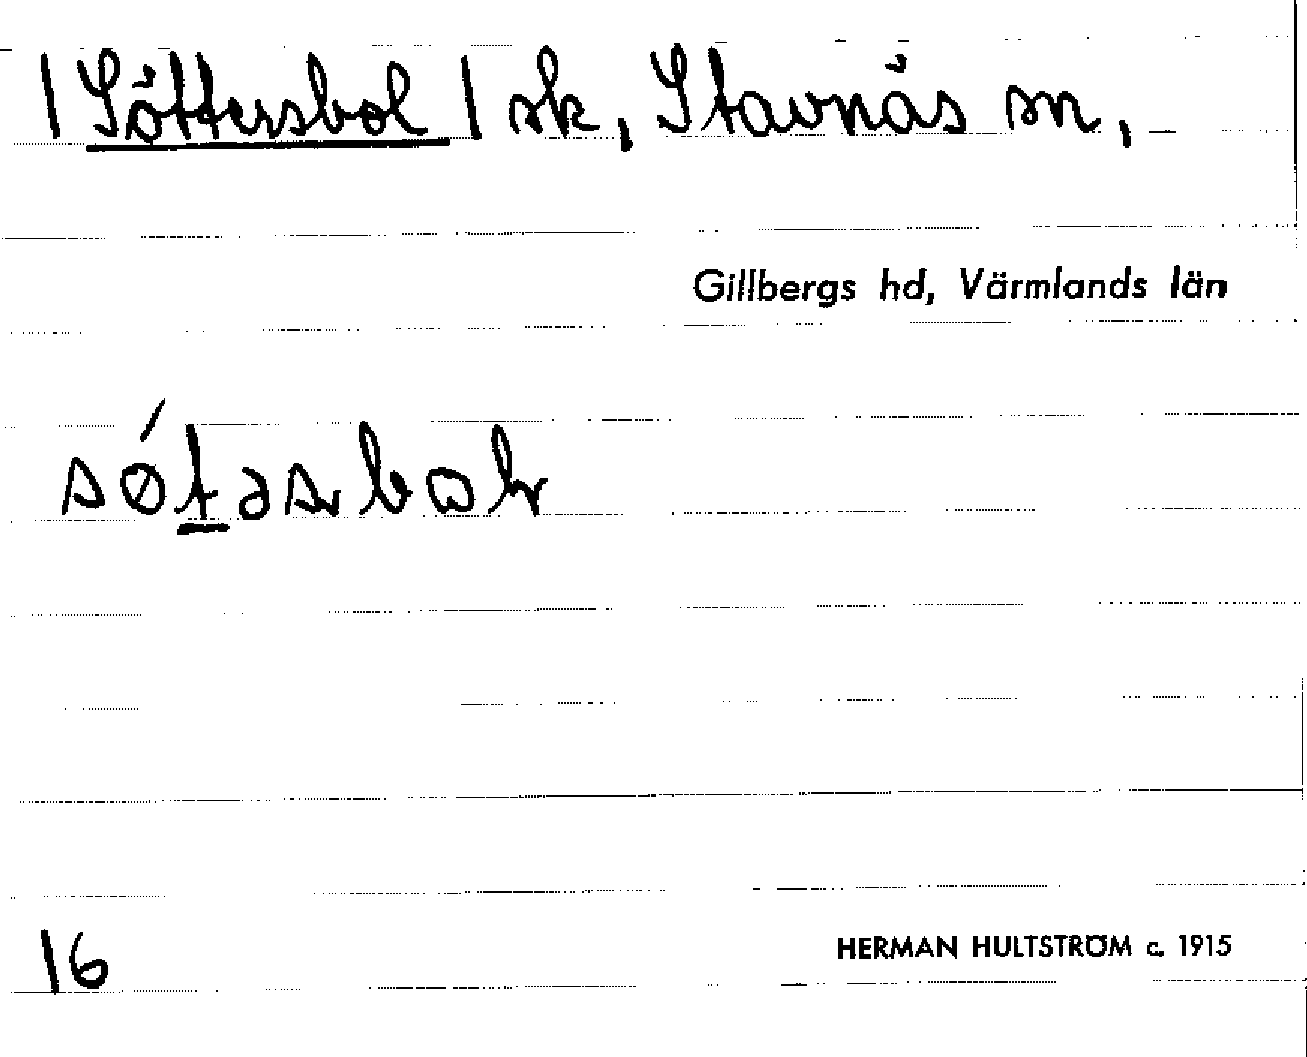 | Söttersbol | sk, Stavnäs sn,
Gillbergs hd, Värmlands län
16
HERMAN HULTSTRÖM c. 1915